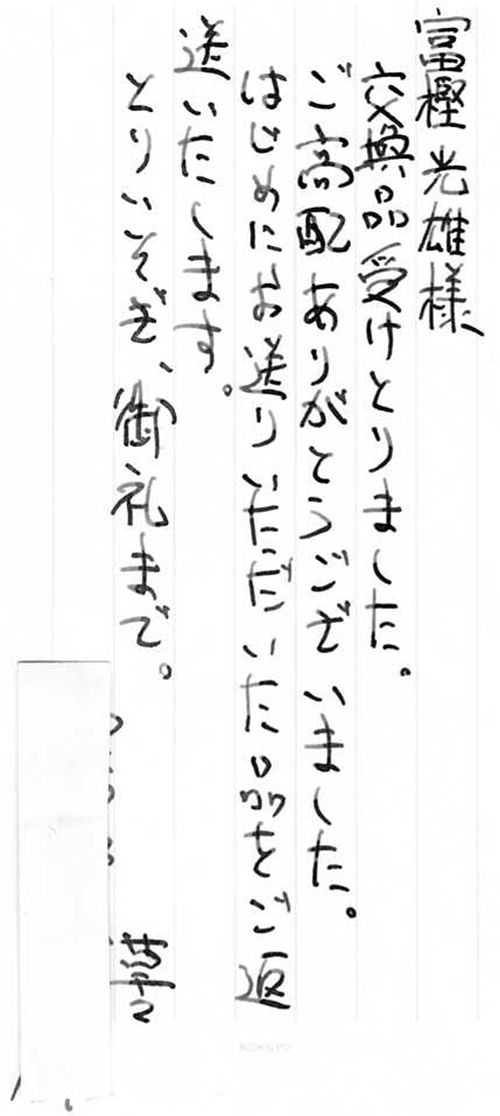 富樫光雄様
交換品受けとりました。
ご高配ありがとうございました。
はじめにお送りいただいた品をご返
送いたします。
とりいそぎ、御礼まで。
草々
KOKUYO